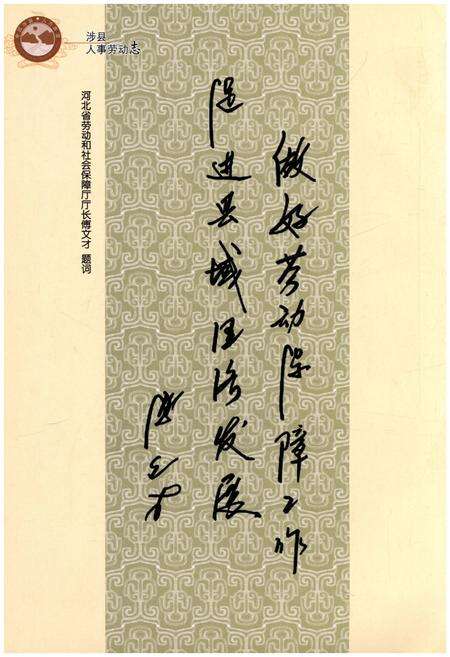 涉县
人事劳动志
做好劳动保障工作
促进县域经济发展
傅文才
河北省劳动和社会保障厅厅长傅文才 题词